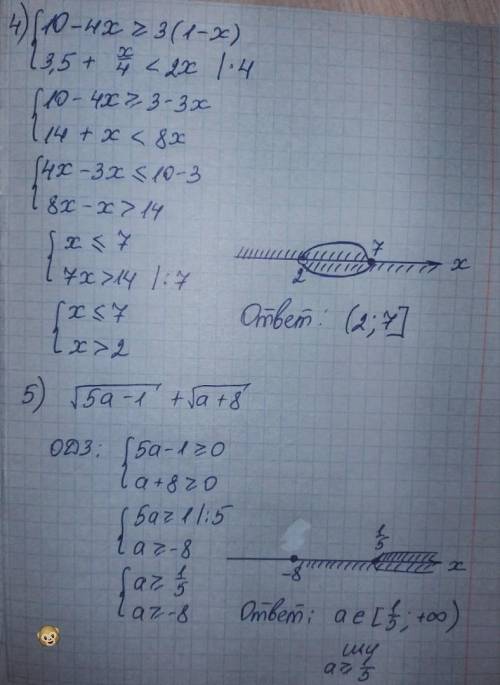 4) { 10 - 4x ≥ 3(1-x)
3,5 + x/4 < 2x |·4
{ 10 - 4x ≥ 3 - 3x
14 + x < 8x
{ 4x - 3x ≤ 10 - 3
8x - x > 14
{ x ≤ 7
7x > 14 |:7
{ x ≤ 7
x > 2
2 7 x
Ответ: (2; 7]
5) √5a-1 + √a+8
ОДЗ: { 5a - 1 ≥ 0
a + 8 ≥ 0
{ 5a ≥ 1 |:5
a ≥ -8
{ a ≥ 1/5
a ≥ -8
-8 1/5 x
Ответ: a ∈ [1/5; +∞)
или
a ≥ 1/5